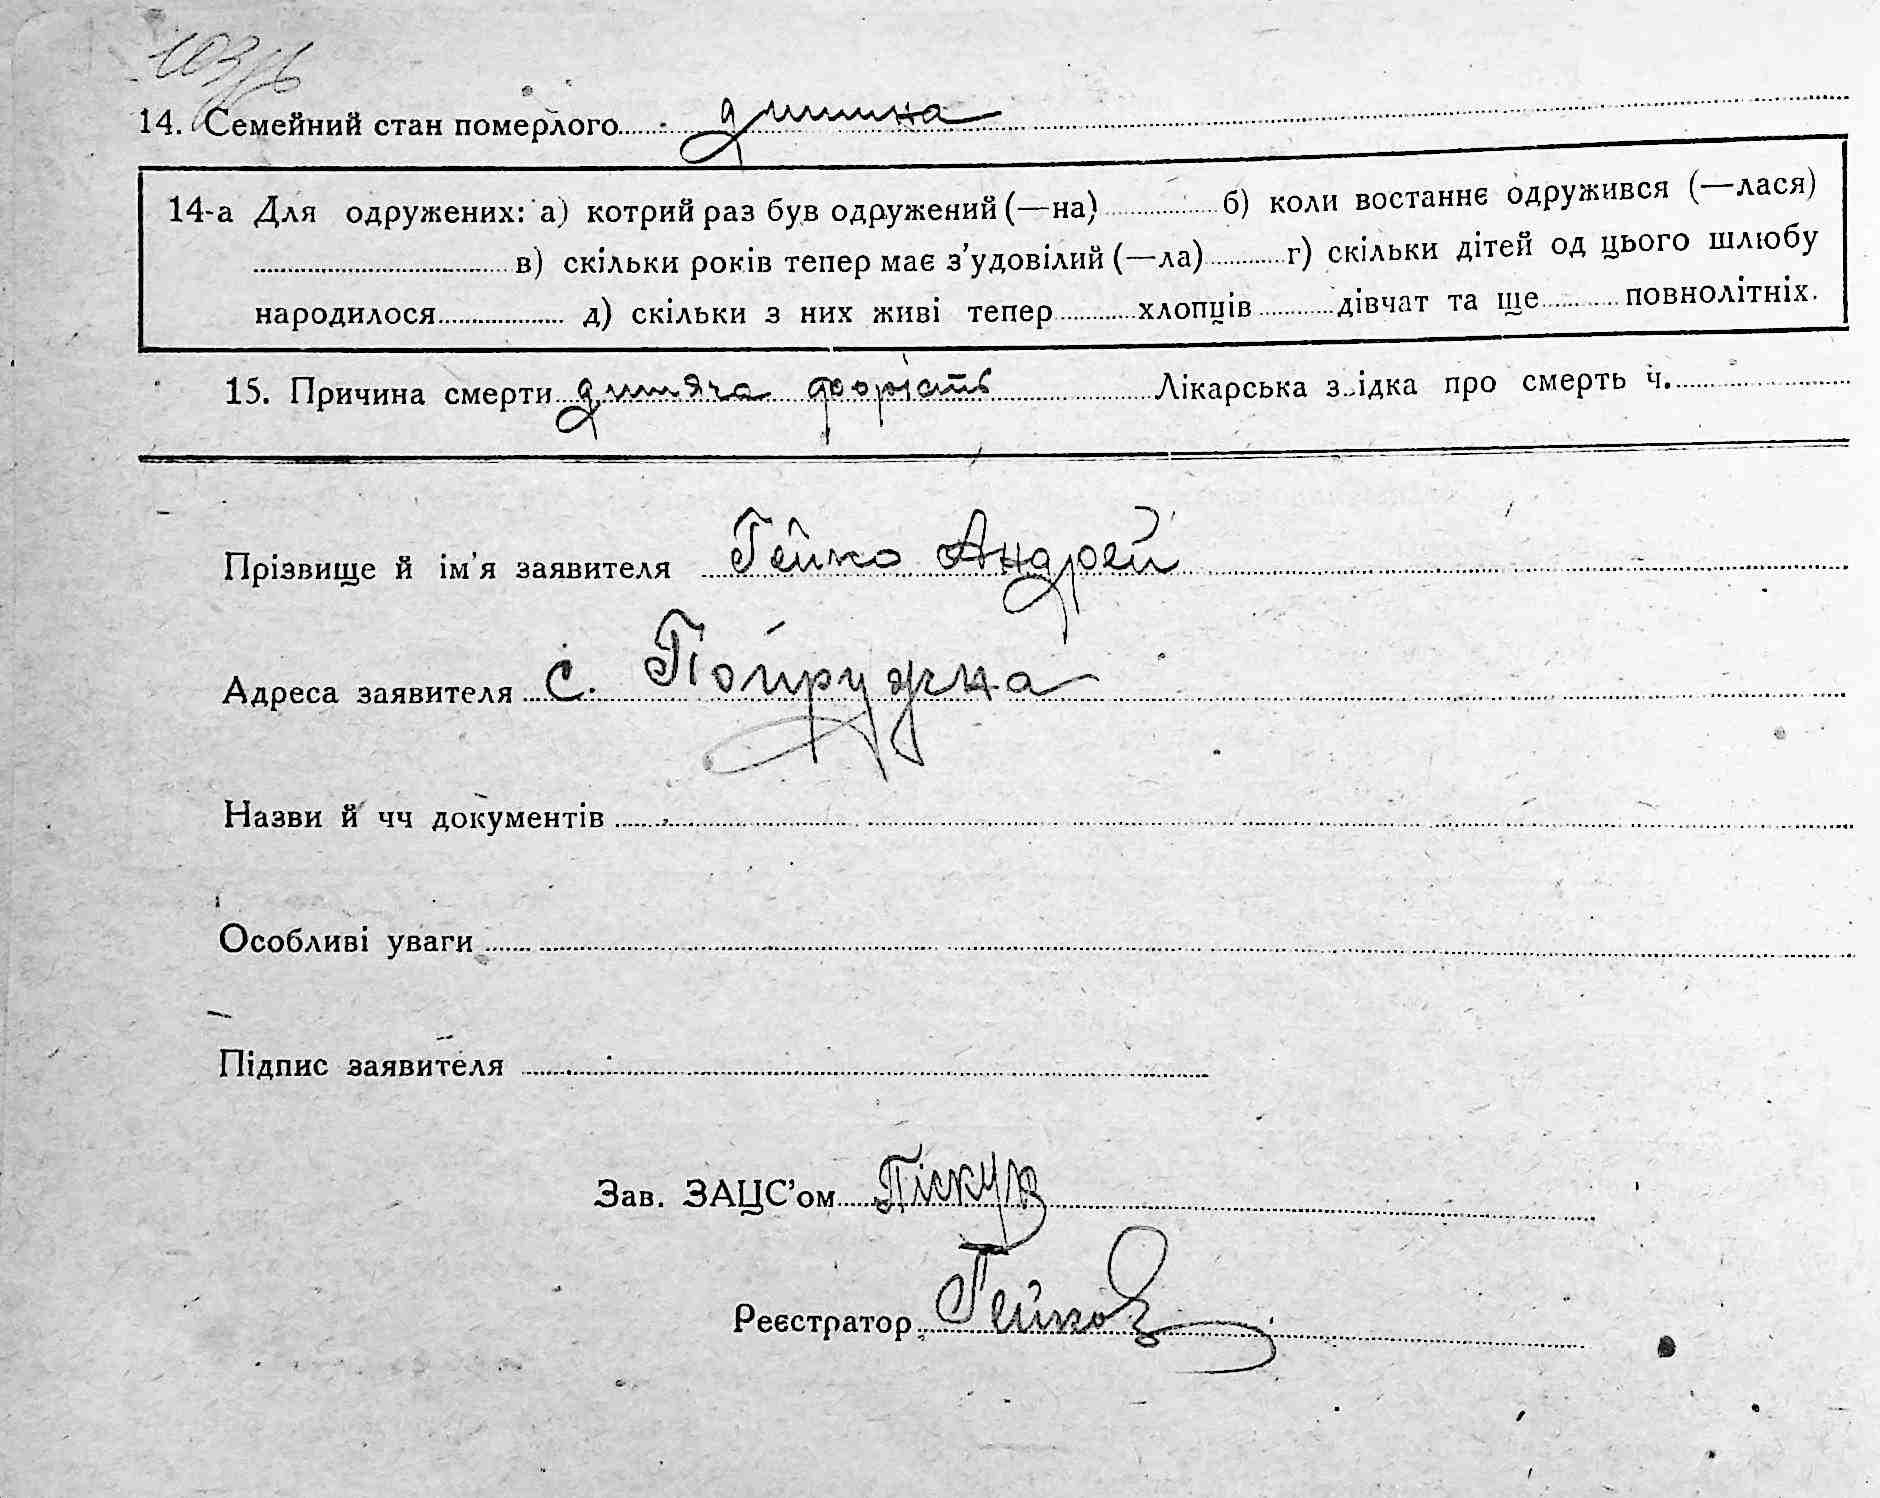 14. Семейний стан померлого дитина
14-а Для одружених: а) котрий раз був одружений (—на) б) коли востаннє одружився (—лася)
в) скільки років тепер має з’удовілий (—ла) г) скільки дітей од цього шлюбу
народилося д) скільки з них живі тепер хлопців дівчат та ще повнолітніх.
15. Причина смерти дитяча Лікарська з ідка про смерть ч.
Прізвище й ім’я заявителя Гейко Андрей
Адреса заявителя с.
Назви й чч документів
Особливі уваги
Підпис заявителя
Зав. ЗАЦС’ом
Реєстратор Гейко